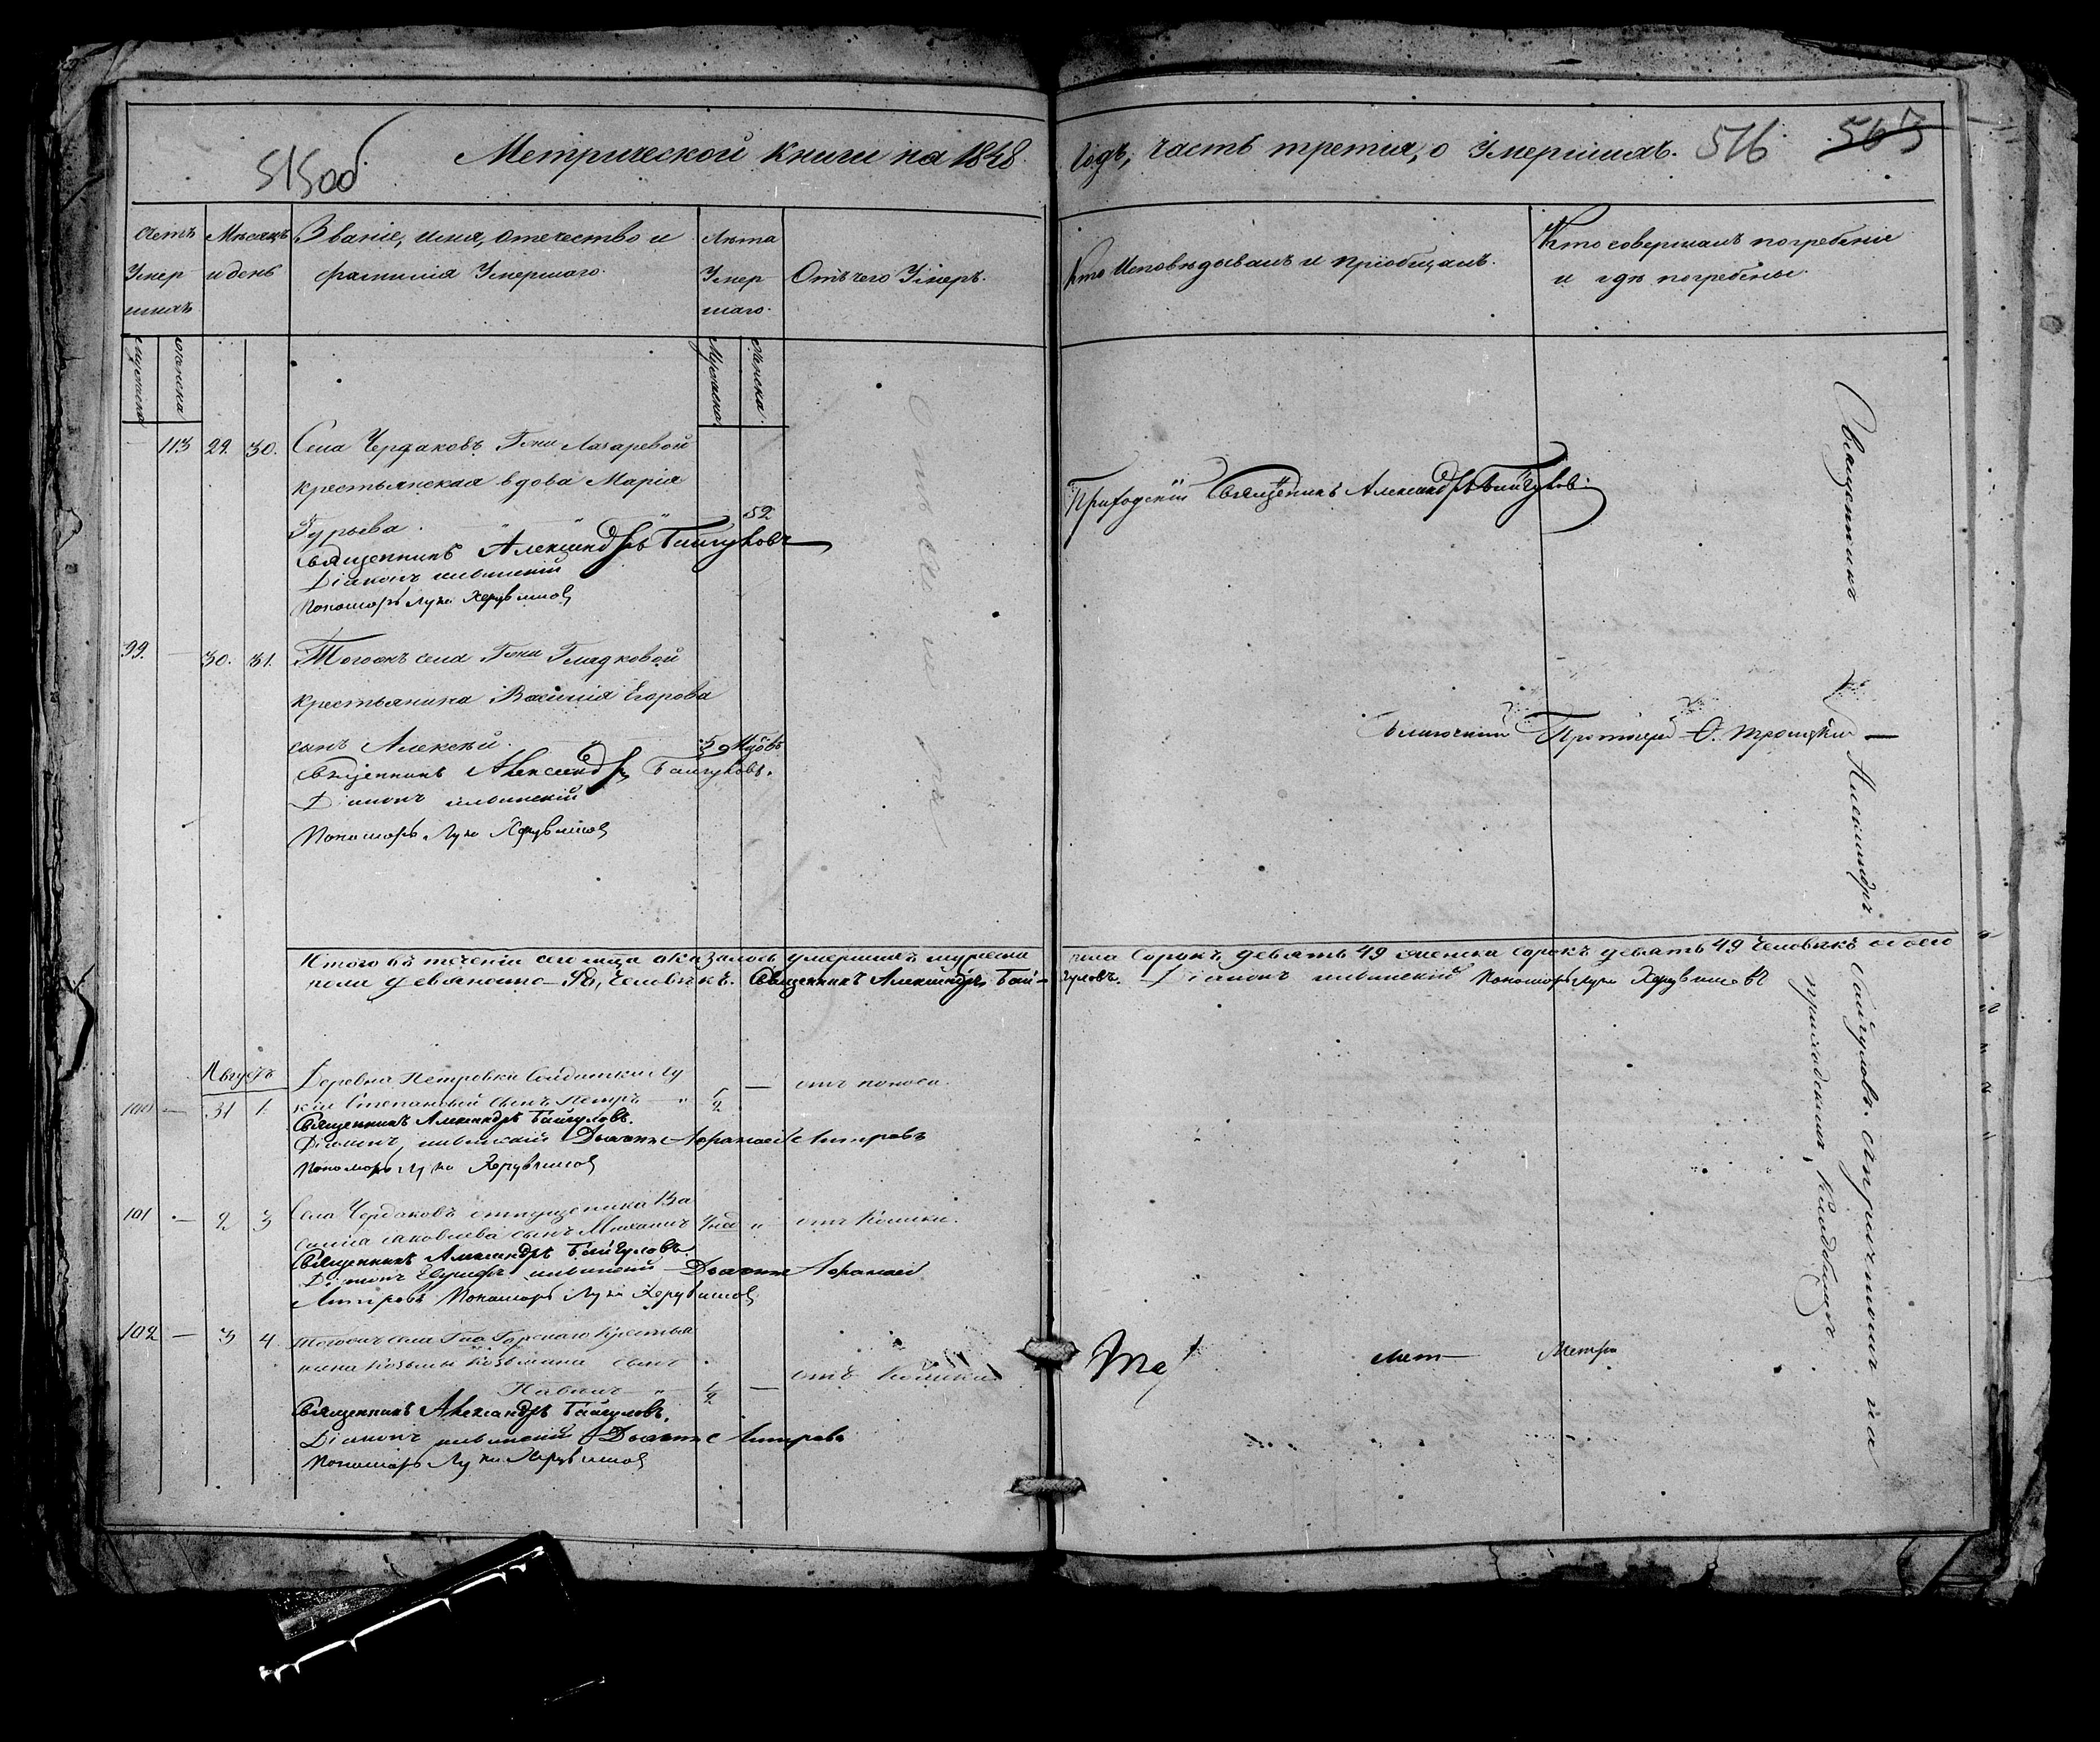 515об
Метрической книги на 1848
годъ, часть третія, о Умершихъ. 516 563
Счетъ Умершихъ
Мѣсяцъ и день
Званіе, имя, отечество и
фамилія Умершаго.
Лѣта Умершаго.
Отъ чего Умеръ.
Кто Исповѣдывалъ и пріобщалъ.
Кто совершалъ погребеніе
и гдѣ погребены.
мужеска
женска
Мужеска
Женска
— 113 29. 30. Села Чердаковъ Гжи Лазаревой
крестьянская вдова Марія
Гурьева. 52
Священникъ Александръ Байгуловъ
Діаконъ
Пономарь Лука Херувимовъ
Приходскій Священникъ Александръ Байгуловъ
99. — 30. 31. Тогожъ села Гжи Гладковой
крестьянина Василія Егорова
сынъ Алексѣй.
Священникъ Александръ Байгуловъ.
Діаконъ
Пономарь Лука Херувимовъ
Отъ холеры
Благочинный Протоіерей Троицкій
Итого въ теченіи сего мца оказалось умершихъ мужеска
пола сорокъ девять 49 женска сорокъ девять 49 человѣкъ обоего
пола девяносто 98, человѣкъ. Священникъ Александръ Бай-
гуловъ. Діаконъ Пономарь Лука Херувимовъ
Августъ
100 — 31 1. Деревни Петровки Солдатки Лу
керіи Степановой сынъ Петръ 1/2 — отъ поноса.
Священникъ Александръ Байгуловъ.
Діаконъ Дьячекъ Афанасій
Пономарь Лука Херувимовъ
101 — 2 3 Села Чердаковъ отпущенника Ва
силія Яковлева сынъ Михаилъ 4 нед „ отъ Кашля.
Священникъ Александръ Байгуловъ.
Діаконъ Дьячекъ Афанасій
Пономарь Лука Херувимовъ
102 — 3 4. Тогожъ села Гна Горскаго Крестья
нина Козьмы Козьмина сынъ
Павелъ 1/2 — отъ Кашля.
Священникъ Александръ Байгуловъ.
Діаконъ Дьячекъ
Пономарь Лука Херувимовъ
Священникъ Александръ Байгуловъ. на
приходскомъ кладбищѣ